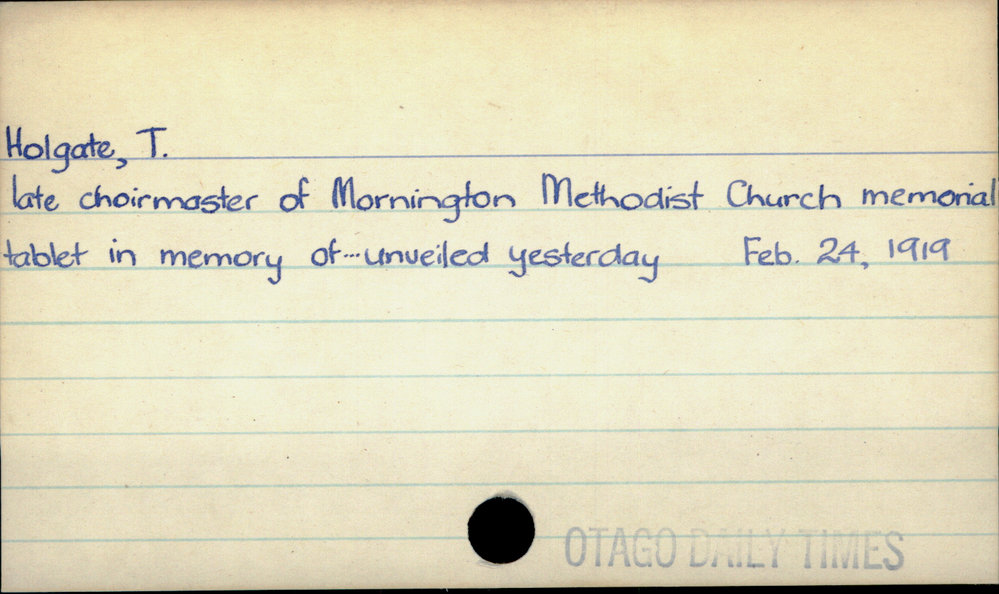 Holgate, T.
late choirmaster of Mornington Methodist Church memorial
tablet in memory of...unveiled yesterday Feb. 24, 1919
OTAGO DAILY TIMES